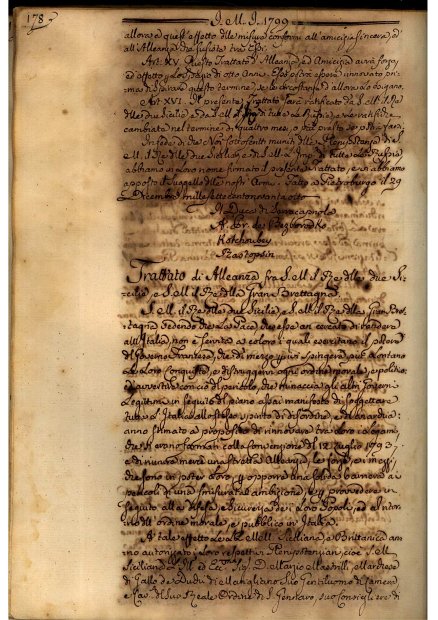 178
I. M. I. 1799
allora a quest'effetto delle misure conformi all'amicizia sincera, ed
all'Alleanza che sussiste tra Essi.
Art. XV. Questo Trattato d'Alleanza, e Amicizia avrà forza,
ed effetto per lo spazio di otto Anni. Esso potrà essere rinnovato pri-
ma di spirare questo termine, se le circostanze ed allora lo esigano.
Art. XVI. Il presente Trattato sarà ratificato da S. M. il Re
delle due Sicilie, e da S. M. l'Imp. di tutte le Russie, e le ratifiche
cambiate nel termine di quattro mesi, o più presto se potrà farsi.
In fede di che Noi sottoscritti muniti della Plenipotenza di S.
M. il Re delle due Sicilie, e di S. M. l'Imp. di tutte le Russie,
abbiamo in loro nome firmato il presente Trattato, e vi abbiamo
apposto il suggello delle nostre Armi. Fatto a Pietroburgo il 29
Dicembre mille settecentonovantotto
Il Duca di Serracapriola
A. Bezborodko
Kotchoubey
Rastopsin
Trattato di Alleanza fra S. M. il Re delle due Si-
cilie, e S. M. il Re della Gran Brettagna
S. M. il Re delle due Sicilie, e S. M. il Re della Gran Bret-
tagna vedendo che la Pace, che essi an cercato di rendere
all'Italia, non è servita a coloro i quali esercitano il potere
di Governo Francese, che di mezzo per spingere più lontano
le loro Conquiste, e distruggervi ogni ordine morale, e politico
ed avvertite con ciò del pericolo, che minaccia gli altri Governi
Legittimi in seguito di piano assai manifesto di soggettare
tutta l'Italia allo stesso spirito di disordine, e di anarchia:
anno stimato a proposito di rinnovare tra loro i legami,
che si erano formati colla convenzione del 12 luglio 1793,
e di riunire mercè una stretta Alleanza, le forze, ed i mezzi,
che sono in poter loro per opporre una salda barriera ai
pericoli di una smisurata ambizione, e per provvedere in
seguito alla difesa, e sicurezza dei loro Popoli, ed al ritor-
no dell'ordine morale, e pubblico in Italia.
A tale effetto le LL. MM. Siciliana, e Britannica an-
no autorizzati i loro respettivi Plenipotenziarj cioè S. M.
Siciliana S. E. il Sig. D. Marzio Mastrilli Marchese
di Gallo de' Duchi di Marigliano suo Gentiluomo di Camera,
e Cav. del Suo Reale Ordine di S. Gennaro, suo Consigliere di